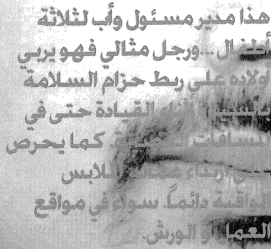 هذا مدير مسئول وأب لثلاثة
أطفال ... ورجل مثالي فهو يربي
أولاده على ربط حزام السلامة
القيادة حتى في
المسافات كما يحرص
ارتداء الملابس
الواقية دائماً. سواء في مواقع
العمل أو الورش.